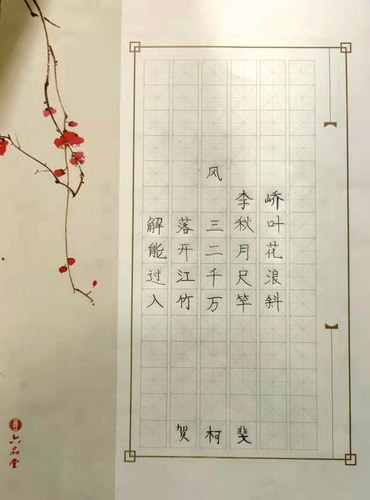 风
李峤
解落三秋叶
能开二月花
过江千尺浪
入竹万竿斜
贺柯斐
六品堂